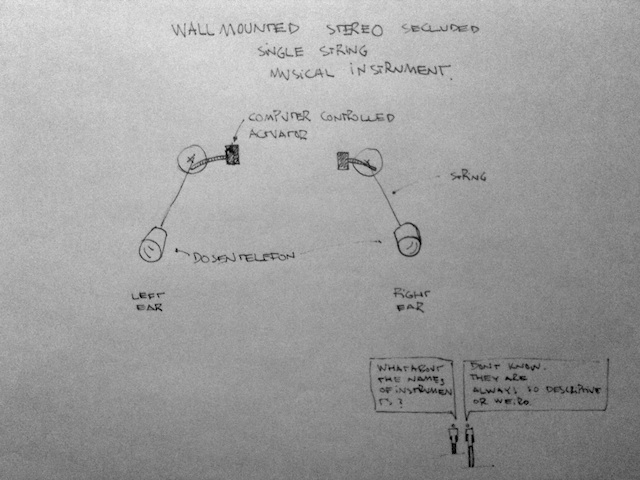 WALL MOUNTED STEREO SECLUDED
SINGLE STRING
MUSICAL INSTRUMENT.
COMPUTER CONTROLLED
ACTUATOR
STRING
DOSENTELEFON
LEFT
EAR
RIGHT
EAR
WHAT ABOUT
THE NAMES
OF INSTRUMEN
TS?
DONT KNOW.
THEY ARE
ALWAYS SO DESCRIPTIVE
OR WEIRD.